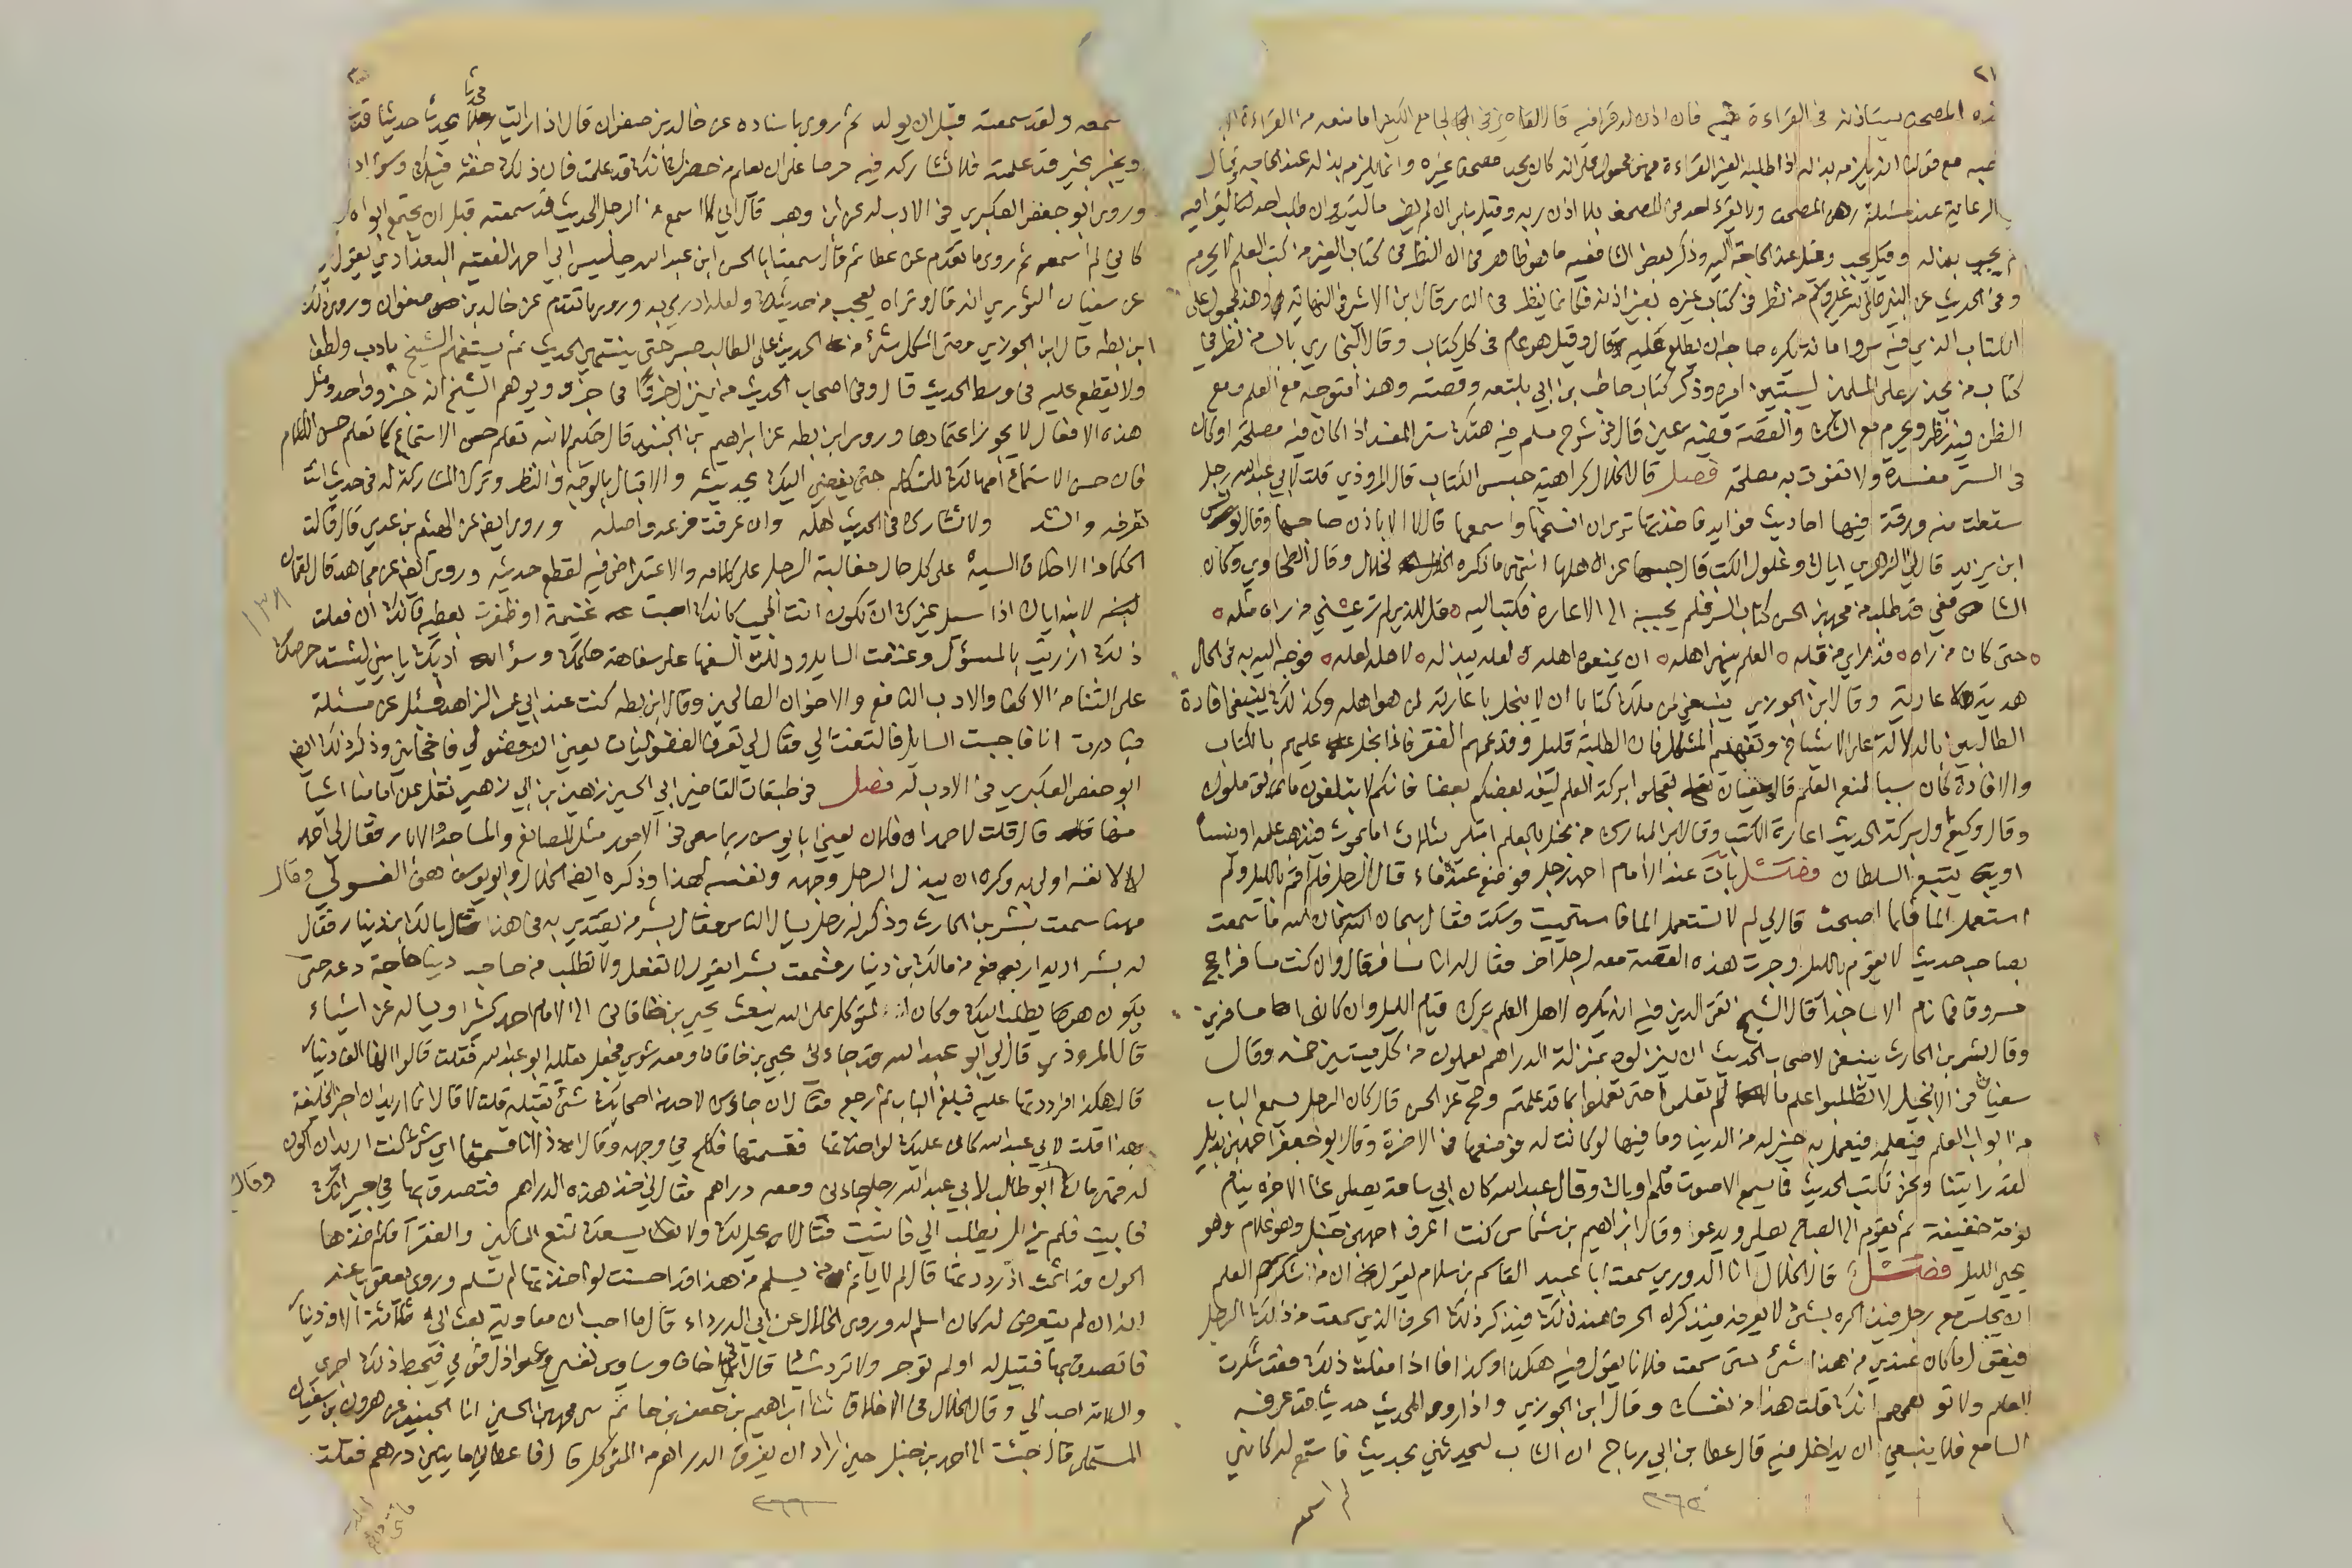 ٢١
هذه المصحف يستاذنه في القراءة فيه فان اذن له قرا فيه قال القاضي في الجامع الكبير اما منعه من القراءة
فيه مع قولنا انه يلزمه بذله اذا طلبه الغير للقراءة فهو محمول على انه كان يجد مصحفا غيره وانما يلزم بذله عند الحاجة وقال
في الرعاية عند مسئلة رهن المصحف ولا يقرا احد في المصحف بلا اذن ربه وقيل بلى ان لم يضر ماليته وان طلبه احد ليقرا فيه
لم يجب بذله وقيل يجب وقيل عند الحاجة اليه وذكر بعض الشافعيه ما هو ظاهر في ان النظر في كتاب الغير من كتب العلم لا يحرم
وفي الحديث عن النبي صلى الله عليه وسلم من نظر في كتاب غيره بغير اذنه فكانما ينظر في النار قال ابن الاثير في النهاية وهذا محمول على
الكتاب الذي فيه سر وامانة يكره صاحبه ان يطلع عليه قال وقيل هو عام في كل كتاب وقال البخاري باب من نظر في
كتاب من يحذر على المسلمين ليستبين امره وذكر كتاب حاطب بن ابي بلتعه وقصته وهذا متوجه مع العلم ومع
الظن فيه نظر ويحرم مع الشك والقصة قضية عين قال في شرح مسلم فيه هتك ستر المفسد اذا كان فيه مصلحة او كان
في الستر مفسدة ولا تفوت به مصلحة فصل قال الخلال كراهية حبس الكتاب قال المروذي قلت لابي عبدالله رجل
سقطت منه ورقة فيها احاديث فوايد فاخذتها ترى ان انسخها واسمعها قال لا الا باذن صاحبها وقال يونس
ابن يزيد قال لي الزهري اياك وغلول الكتب قال حبسها عن اهلها انتهى ما ذكره الخلال وقال الطحاوي وكان
الشافعي قد طلب من محمد بن الحسن كتاب السير فلم يجبه الى الاعارة فكتب اليه ه قل للذي لم تر عيني من راه مثله ه
ه حتى كان من راه ه قد راى من قبله ه العلم ينهى اهله ه ان يمنعوه اهله ه لعله يبذله ه لاهله لعله ه فوجه اليه به في الحال
هدية لا عارية وقال ابن الجوزي ينبغي لمن ملك كتابا ان لا يبخل باعارته لمن هو اهله وكذلك ينبغي افادة
الطالبين بالدلالة على الاشياخ وتفهيم المشكل فان الطلبة قليل وقد عمهم الفقر فاذا بخل عليهم بالكتاب
والافادة كان سببا لمنع العلم قال سفيان تعجلوا بركة العلم ليفد بعضكم بعضا فانكم لا تبلغون ما تؤملون
وقال وكيع اول بركة الحديث اعارة الكتب وقال ابن المبارك من بخل بالعلم ابتلي بثلاث اما يموت فيذهب علمه او ينساه
او يتبع السلطان فصل بات عند الامام احمد رجل فوضع عنده ماء قال الرجل فلم اقم بالليل ولم
استعمل الماء فلما اصبحت قال لي لم لا تستعمل الماء فاستحييت وسكت فقال سبحان الله سبحان الله ما سمعت
بصاحب حديث لا يقوم بالليل وجرت هذه القصة معه لرجل اخر فقال له انا مسافر قال وان كنت مسافرا حج
مسروق فما نام الا ساجدا قال الشيخ تقي الدين فيه انه يكره لاهل العلم ترك قيام الليل وان كانوا مسافرين
وقال بشر بن الحارث ينبغي لاصحاب الحديث ان ينزلوه بمنزلة الدراهم يعملون من كل ميتين خمسة وقال
سفيان في الانجيل لا تطلبوا علم ما لم تعلموا حتى تعملوا بما قد علمتم وصح عن الحسن قال كان الرجل يسمع الباب
من ابواب العلم فيتعلمه فيعمل به خير له من الدنيا وما فيها لو كانت له فوضعها في الاخرة وقال ابو جعفر احمد بن بديل
لقد رايتنا ونحن نكتب الحديث فما يسمع الا صوت قلم او باك وقال عبدالله كان ابي ساعة يصلي عشا الاخرة ينام
نومة خفيفة ثم يقوم الى الصباح يصلي ويدعو وقال ابراهيم بن شماس كنت اعرف احمد بن حنبل وهو غلام وهو
يحيي الليل فصل قال الخلال انا الدوري سمعت ابا عبيد القاسم بن سلام يقول ان من شكر العلم
ان يجلس مع رجل فيذاكره بشئ لا يعرفه فيذكر له الحرف عند ذلك فيذكر ذلك الحرف الذي سمعت من ذلك الرجل
فيقول ما كان عندي من هذا شئ حتى سمعت فلانا يقول فيه هكذا وكذا فاذا فعلت ذلك فقد شكرت
العلم ولا توهمهم انك قلت هذا من نفسك وقال ابن الجوزي واذا روى المحدث حديثا قد عرفه
السامع فلا ينبغي ان يداخله فيه قال عطا بن ابي رباح ان الشاب ليحدثني بحديث فاستمع له كاني
لم اسمعه
٢٦٥
سمعه ولقد سمعته قبل ان يولد ثم روى باسناده عن خالد بن صفوان قال اذا رايت رجلا يحدث حديثا قد
ويخبر بخبر قد علمته فلا تشاركه فيه حرصا على ان يعلم من حضرك انك قد علمت فان ذلك خفة فيك وسؤ ادب
وروى ابو حفص العكبري في الادب له عن ابن وهب قال اني لا اسمع من الرجل الحديث قد سمعته قبل ان يجتمع ابواه
كاني لم اسمعه ثم روى ما تقدم عن عطا ثم قال سمعت ابا الحسن ابن عبدالله جليس ابي احمد الفقيه البغدادي يقول
عن سفيان الثوري انه قال وتراه يعجب من حديثك ولعله ادرى به وروى ما تقدم عن خالد بن صفوان وروى ذلك
ابن بطه قال ابن الجوزي ومتى اشكل شئ من الحديث على الطالب صبر حتى ينتهي الحديث ثم يستفهم الشيخ بادب ولطف
ولا يقطع عليه في وسط الحديث قال وفي اصحاب الحديث من ينزل حرفا في جزء ويوهم الشيخ انه جزء واحد ومثل
هذه الافعال لا يجوز اعتمادها وروى ابن بطه عن ابراهيم بن الجنيد قال حكيم لابنه تعلم حسن الاستماع كما تعلم حسن الكلام
فان حسن الاستماع امهالك للمتكلم حتى يفضي اليك بحديثه والاقبال بالوجه والنظر وترك المشاركة له في حديث انت
تعرفه وانشد ولا تشارك في الحديث اهله وان عرفت فرعه واصله وروى ايضا عن الهيثم بن عدي قال قالت
الحكماء من الاخلاق السيئة على كل حال مغالبة الرجل على كلامه والاعتراض فيه لقطع حديثه وروى ايضا عن مجاهد قال لقمان
لابنه اياك اذا سيل غيرك ان تكون انت المجيب كانك اصبت غنيمة او ظفرت بعطيه فانك ان فعلت
ذلك ازريت بالمسؤل وعنفت السايل ودللت السفها على سفاهة حلمك وسؤ ادبك يا بني ليشتد حرصك
على الثنا من الاكفا والادب النافع والاخوان الصالحين وقال ابن بطه كنت عند ابي عمر الزاهد فسئل عن مسئلة
فبادرت انا فاجبت السايل فالتفت الي فقال لي تعرف الفضوليات يعني انت فضولي فاخجلني وذكر ذلك ايضا
ابو حفص العكبري في الادب له فصل في طبقات القاضي ابي الحسين زهير بن ابي زهير نقل عن امامنا اشيا
منها قال قلت لاحمد ان فلان يعني ابا يوسف ربما سعى في الامور مثل المصانع والمساجد والابار فقال لي احمد
لا لا نفسه اولى به وكره ان يبذل الرجل وجهه ونفسه لهذا وذكره ايضا الخلال وابو يوسف هو الغسولي وقال
مهنا سمعت بشر بن الحارث وذكر له رجل يسال الناس فقال بشر من يقتدي به في هذا قال مالك ابن دينار فقال
له بشر اريد ارفع من مالك بن دينار فسمعت بشرا يقول لا تفعل ولا تطلب من صاحب دنيا حاجة دعه حتى
يكون هو يطلب اليك وكان المتوكل على الله يبعث يحيى بن خاقان الى الامام احمد كثيرا ويساله عن اشياء
قال المروذي قال لي ابو عبدالله قد جاءني يحيى بن خاقان ومعه شوي فجعل يقلله ابو عبدالله فقلت قالوا انها الف دينار
قال هكذا فرددتها عليه فبلغ الباب ثم رجع فقال ان جاءك احد من اصحابك بشئ تقبله قلت لا قال انما اريد ان اخبر الخليفة
بهذا قلت لابي عبدالله كان عليك لو اخذتها فقسمتها فكلح في وجهه وقال اذا انا قسمتها اي شئ كنت اريد ان اكون
له قهرمان ابو طالب لابي عبدالله رجل جاءني ومعه دراهم فقال لي خذ هذه الدراهم فتصدق بها في جيرانك
فابيت فلم يزل يطلب الي فابيت فقال لا يحل لك ولا يسعك تمنع المساكين والفقرا فلم اخذها
اكون قد اثمت اذ رددتها قال لم لا ياثم من يسلم من هذا قد احسنت لو اخذتها لم تسلم وروى يعقوب عنه
انه ان لم يتعرض له كان اسلم له وروى الخلال عن ابي الدرداء قال ما احب ان معاوية بعث الي ثلاثة الاف دينار
فاتصدق بها فقيل له او لم توجر ولا ترد شيئا قال اني اخاف وساوس نفسي وعواذل قومي فيحبط ذلك اجري
والسلامة احب الي وقال الخلال في الاخلاق ثنا ابراهيم بن جعفر بن حاتم سمع محمد بن الحسين انا الجنيد عن هرون بن سفيان
المستملي قال جئت الى احمد بن حنبل حين اراد ان يفرق الدراهم من المتوكل قال فاعطاني مايتي درهم فقلت
وقال
١٣٨
٢٦٦